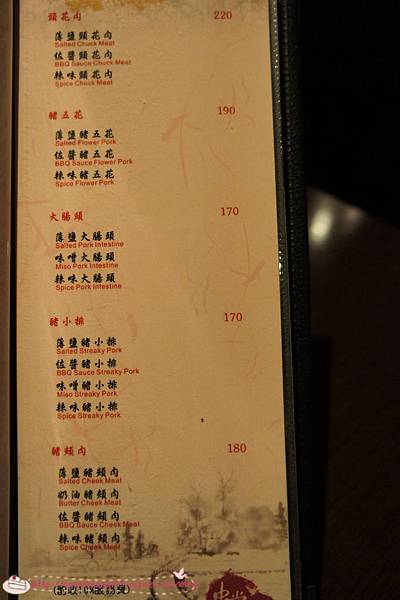 頸花肉 220
薄鹽頸花肉
Salted Chuck Meat
佐醬頸花肉
BBQ Sauce Chuck Meat
辣味頸花肉
Spice Chuck Meat
豬五花 190
薄鹽豬五花
Salted Flower Pork
佐醬豬五花
BBQ Sauce Flower Pork
辣味豬五花
Spice Flower Pork
大腸頭 170
薄鹽大腸頭
Salted Pork Intestine
味噌大腸頭
Miso Pork Intestine
辣味大腸頭
Spice Pork Intestine
豬小排 170
薄鹽豬小排
Salted Streaky Pork
佐醬豬小排
BBQ Sauce Streaky Pork
味噌豬小排
Miso Streaky Pork
辣味豬小排
Spice Streaky Pork
豬頰肉 180
薄鹽豬頰肉
Salted Cheek Meat
奶油豬頰肉
Butter Cheek Meat
佐醬豬頰肉
BBQ Sauce Cheek Meat
辣味豬頰肉
Spice Cheek Meat
(酌收10%服務費)